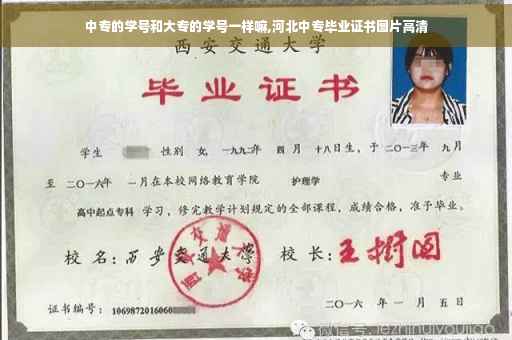 中专的学号和大专的学号一样嘛,河北中专毕业证书图片高清
西安交通大学
毕业证书
学生 性别 女, 一九九二年 四月 十八日生, 于二〇一三年 九月
至 二〇一六年 一月在本校网络教育学院 护理学 专业
高中起点专科 学习, 修完教学计划规定的全部课程, 成绩合格, 准予毕业。
校名: 西安交通大学 校长: 王树国
西安交通大学
证书编号: 1069872016060
二〇一六 年 一 月 五 日
微信号: jiezhihuiyoujiao